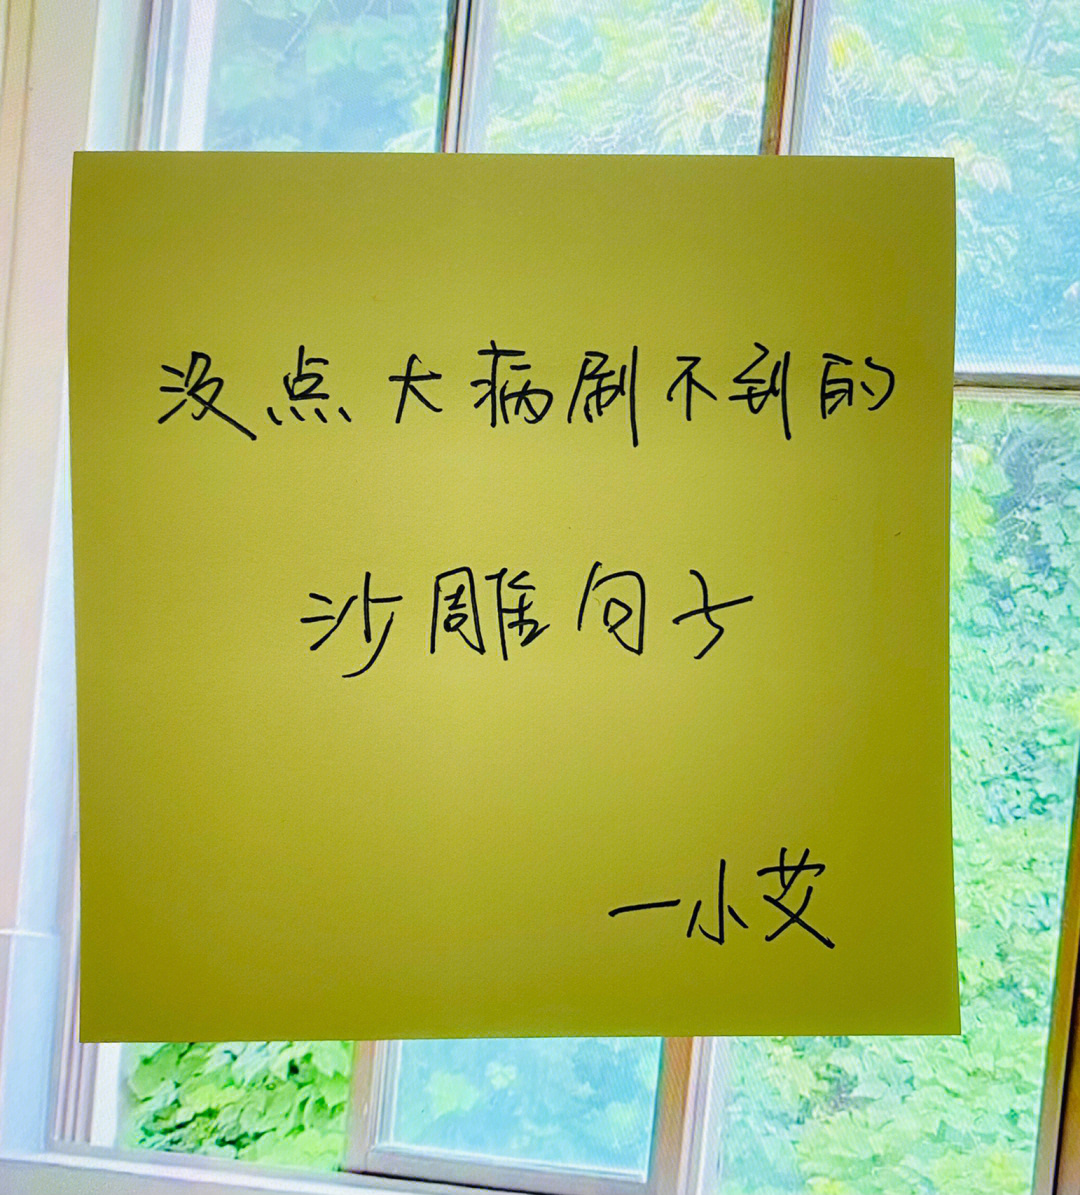 没点大病刷不到的
沙雕句子
—小艾